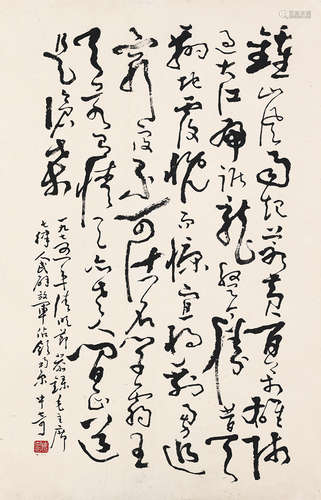 鍾山风雨起苍黄百万雄师
过大江虎踞龙盘今胜昔天
翻地覆慨而慷宜将剩勇追
穷寇不可沽名学霸王
天若有情天亦老人间正道
是沧桑
一九七五年清明節恭録毛主席
七律人民解放軍佔領南京